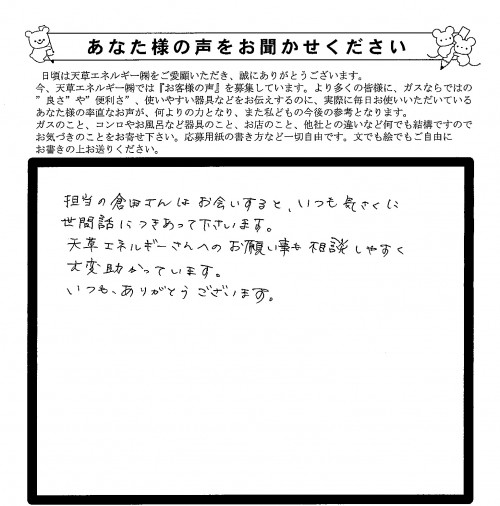 あなた様の声をお聞かせください
日頃は天草エネルギー㈱をご愛顧いただき、誠にありがとうございます。
今、天草エネルギー㈱では『お客様の声』を募集しています。より多くの皆様に、ガスならではの
”良さ”や”便利さ”、使いやすい器具などをお伝えするのに、実際に毎日お使いいただいている
あなた様の率直なお声が、何よりの力となり、また私どもの今後の参考となります。
ガスのこと、コンロやお風呂など器具のこと、お店のこと、他社との違いなど何でも結構ですので
お気づきのことをお寄せ下さい。応募用紙の書き方など一切自由です。文でも絵でもご自由に
お書きの上お送りください。
担当の倉田さんはお会いすると、いつも気さくに
世間話につきあって下さいます。
天草エネルギーさんへのお願い事も相談しやすく
大変助かっています。
いつも、ありがとうございます。